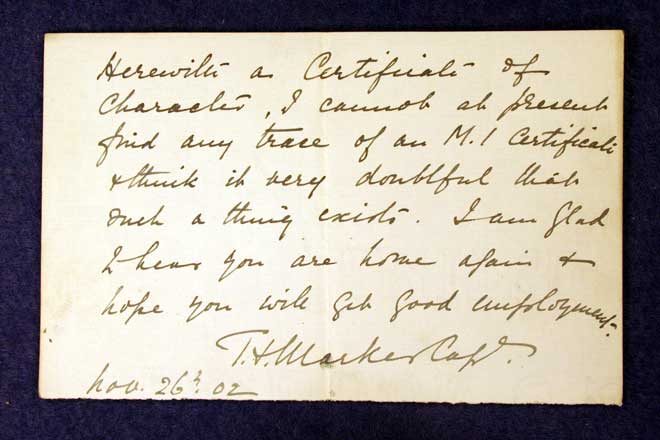 Herewith a Certificate of
Character, I cannot at present
find any trace of an M.I Certificate
& think it very doubtful that
such a thing exists. I am glad
to hear you are home again &
hope you will get good employment.
T.H. Marker Capt.
Nov. 26th. 02